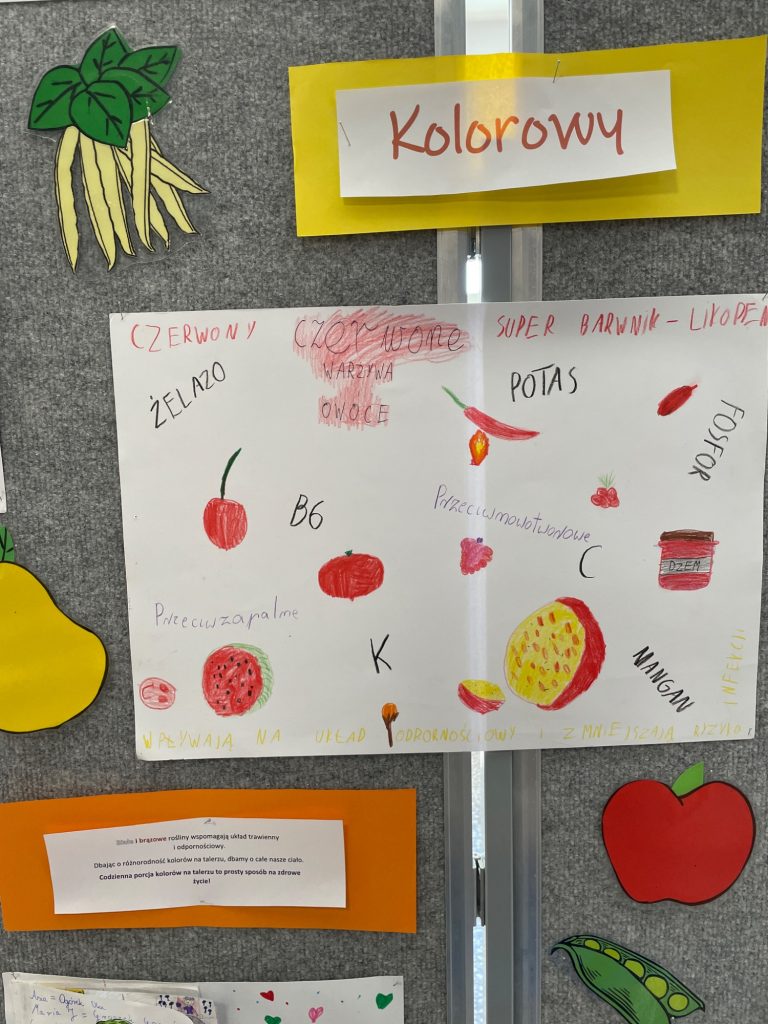 Kolorowy
CZERWONY
CZERWONE
WARZYWA
OWOCE
SUPER BARWNIK - LIKOPEN
ŻELAZO
POTAS
FOSFOR
B6
Przeciwnowotworowe
C
DŻEM
Przeciwzapalne
K
MANGAN
WPŁYWAJĄ NA UKŁAD ODPORNOŚCIOWY I ZMNIEJSZAJĄ RYZYKO
INFEKCJI
Białe i brązowe rośliny wspomagają układ trawienny
i odpornościowy.
Dbając o różnorodność kolorów na talerzu, dbamy o całe nasze ciało.
Codzienna porcja kolorów na talerzu to prosty sposób na zdrowe
życie!
Ania = Ogórek
Maria J =